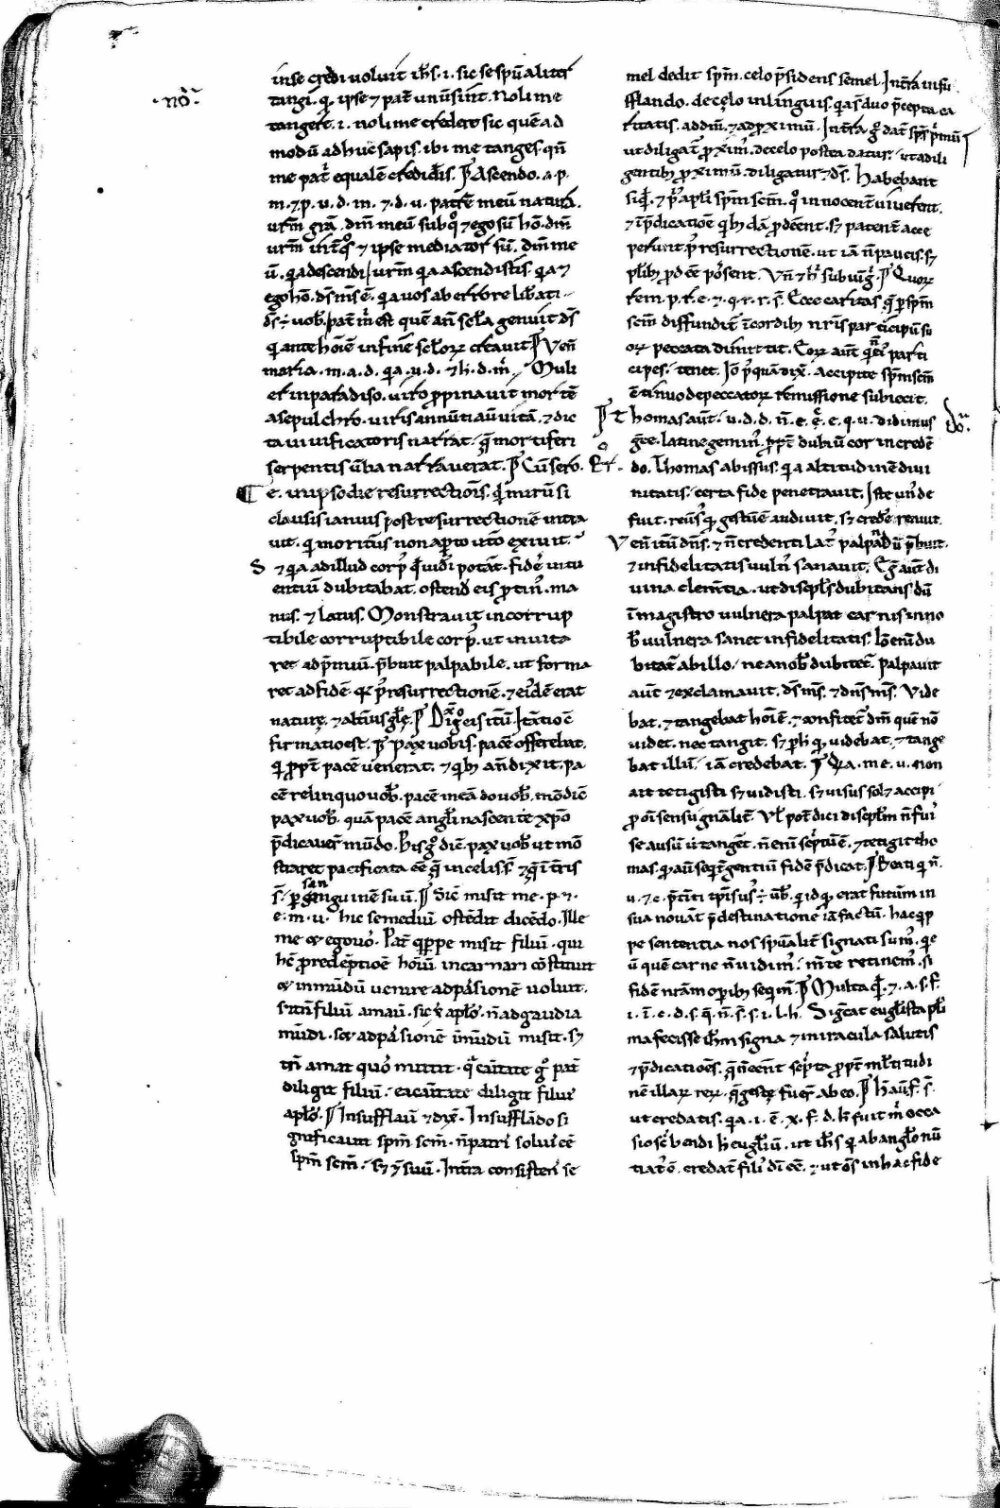 nō
in se credi voluit ih̄s. i. sic se spūaliter
tangi. q̄ ipse ⁊ pat̄ unū sunt. Noli me
tangere. i. noli me credere sic quē ad
modū adhuc sapis. ibi me tanges. qn̄
me pat̄ equalē credid̄is. ¶ Ascendo. a. p.
m. ⁊ p. u. d. m. ⁊ d. u. patrē meū natura.
urm̄ grā. dm̄ meū sub q° ⁊ ego sum hō. dm̄
urm̄ int̄ q°s ⁊ ipse mediator sū. dm̄ me
ū. q̄a descendi. urm̄ q̄a ascendistis. q̄a ⁊
ego hō. ds̄ ms̄ ē. q̄a uos ab errore lib̄ati
ds̄ ÷ uob̄. pat̄ m̄ est quē an̄ sc̄la genuit ds̄
q̄ ante hoīē in fine sc̄loꝝ creauit ¶ Ven̄
maria. m. a. d. q̄a. u. d. ⁊ h̄. d. m̄. Muli
er in paradiso. uiro propinauit mortē
a sepulchro. uiris annūtiat uitā. ⁊ dic
ta uiuificatoris narrat. q̄ mortiferi
serpentis uerba narrauerat. ¶ Cū sero.
e. in ipso die resurrectionis. q̄ mirū si
clausis ianuis post resurrectionē intra
uit. q̄ moriturus non aperto utero exiuit.
S ⁊ q̄a ad illud corp̄ q̄ uid̄i poterat. fidē intu
entiū dubitabat. ostend̄ eis protin̄. ma
nus. ⁊ latus. Monstrauit incorrup
tibile corruptibile corp̄. ut inuita
ret ad p̄miū. p̄buit palpabile. ut forma
ret ad fidē. q̄ p̄ resurrectionē. ⁊ eiusdē erat
naturę. ⁊ alterius glę. ¶ Dix̄ g° eis it̄um. Iteratio ē
firmatio est. ¶ Pax uobis. pacē offerebat.
q̄ propt̄ pacē uenerat. ⁊ q̄b; an̄ dixit. pa
cē relinquo uob̄. pacē meā do uob̄. modo diē
pax uob̄. quā pacē angl̄i nascente xp̄o
p̄dicauer̄ mūdo. Bis g° diē. pax uob̄ ut mō
straret pacificata ēē q̄ in celis s̄. ⁊ q̄ in t̄ris
s̄. p̄ sanguinē suū. ¶ Sic̄ misit me. p. ⁊
e. m. u. hic se mediū ostēdit dicēdo. Ille
me ⁊ ego uo°. Pat̄ q̄ppe misit filiū. qui
hc̄ p̄ redēptionē hoīū incarnari cōstituit
⁊ in mūdū uenire ad passionē uoluit.
s; tn̄ filiū amauit. sic ⁊ aplo°. n̄ ad gaudia
mūdi. set ad passionē in mūdū misit. s;
tn̄ amat quo° mittit. q̄ caritate g° pat̄
diligit filiū. ea caritate diligit filius
aplo°. ¶ Insufflauit ⁊ dix̄. Insufflādo si
gnificauit spm̄ scm̄. n̄ patris solius ēē
spm̄ scm̄. s; ⁊ suū. In t̄ra consistens se
mel dedit spm̄. celo p̄sidens semel. In t̄ra insu
fflando. de celo in linguis. q̄a s̄ duo p̄cepta ca
ritatis. ad dm̄. ⁊ ad proximū. In t̄ra g° dat̄ sps̄ p̄mū
ut diligat̄ proxim̄. de celo postea datur. ut a dili
gentib; proximū. diligatur ⁊ ds̄. Habebant
siq̄. ⁊ p̄ apl̄i spm̄ scm̄. q° innocent̄ uiuerent.
⁊ in p̄dicationē q̄b; dā prodeēnt. s; patent̄ acce
perunt p̄ resurrectionē. ut iā n̄ paucis. s;
pl̄ib; prodēē possent. Vn̄ ⁊ h̄ subiūg̅. ¶ Quoꝝ
rem. p. r. e. ⁊. q. r. r. s̄. Ecce caritas q̄ p̄ spm̄
scm̄ diffundit̄ in cordib; nr̄is participū su
oꝝ peccata dimittit. Eoꝝ aut̄ q̄ n̄ ei° parti
cipes. tenet. Iō p̄quā dix̄. Accipite spm̄ scm̄
ētinuo de peccatoꝝ remissione subiecit.
¶ Thomas aut̄. u. d. d. n̄. e. ę. e. q. u. didimus
gr̄ce. latine gemin̄. propt̄ dubiū cor in credē
do. Thomas abissus. q̄a altitudinē diui
nitatis. certa fide penetrauit. Iste un̄ de
fuit. reūsus q̄ gestū ē audiuit. s; crede renuit.
Venit it̄um dn̄s. ⁊ n̄ credenti lat̄ palpandū p̄buit.
⁊ infidelitatis uuln̄ sanauit. Eḡ aut̄ di
uina clemtia. ut discipl̄s dubitans dū
in magistro uulnera palpat carnis in no
b̄ uulnera sanet infidelitatis. Iō enī du
bitat̄ ab illo. ne a nob̄ dubitet̄. Palpauit
aut̄ ⁊ exclamauit. ds̄ ms̄. ⁊ dn̄s ms̄. Vide
bat. ⁊ tangebat hoīē. ⁊ confitet̄ dm̄ quē nō
uidet. nec tangit. s; p̄ h̄ q̄ uidebat. ⁊ tange
bat illū. iā credebat. ¶ Q̄a. m e. u. non
ait tetigisti s; uidisti. s; uisus sol& accipi
pro oī sensu gn̄alit̄. Vl̄ pot̄ dici discipl̄m n̄ fui
se ausū ut tanget̄. n̄ enī sc̄ptū ē. ⁊ tetigit tho
mas. q̄ aut̄ seqt̄ gentiū fidem p̄dicat. ¶ Beati q̄ n̄.
u. ⁊ c. p̄t̄iti tp̄is us° ÷ ūb̄. q̄ id q̄ erat futurū in
sua nouat̄ p̄destinatione iā factū. hac q̄p
pe sententia nos spūalit̄ signati sum̄. q̄ e
ū quē carne n̄ uidim̄. m̄te retinem̄. si
fidē nr̄am op̄ib; seqm̄. ¶ Multa q̄. ⁊. a. s. f.
i. ī. e. d. s. q̄. n̄. s̄. s. i. l. h. Sig̅cat eugl̄ista pl̄i
ma fecisse ih̄m signa ⁊ miracula salutis
⁊ p̄dicationes. q̄ n̄ eēnt sc̄pta propt̄ ml̄titudi
nē illaꝝ reꝝ. q̄ gestę fueꝝ ab eo. ¶ Hāuf̄. s̄.
ut credatis. q̄a. i. ē. x. f. d. h̄ fuit m̄ occa
sio sc̄bendi h̄ eugl̄iū. ut ih̄s q̄ ab anglo nū
tiat° ē. credat̄ fili° dī ēē. ⁊ ut oēs in hac fide